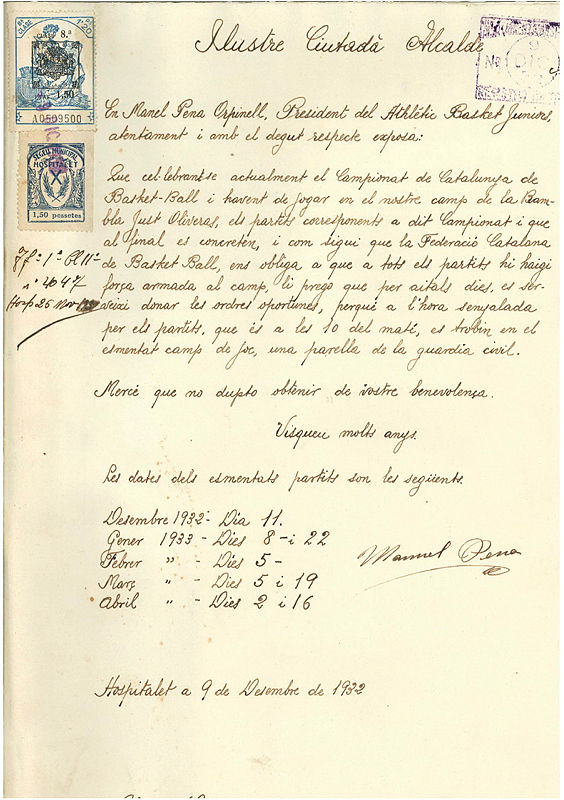 8ª CLASE
1'20
8.ª
1,50
A0509500
SEGELL MUNICIPAL
HOSPITALET
1,50 pessetes
Nº
9
DIC
Ilustre Ciutadà Alcalde
En Manel Pena Orpinell, President del Athlètic Basket Juniors,
atentament i amb el degut respecte exposa:
Que cel·lebrantse actualment el Campionat de Catalunya de
Basket-Ball i havent de jogar en el nostre camp de la Ram-
bla Just Oliveras, els partits corresponents a dit Campionat i que
al final es concreten, i com sigui que la Federació Catalana
de Basket Ball, ens obliga a que a tots els partits hi haigi
força armada al camp, li prego que per aitals dies, es ser-
veixi donar les ordres oportunes, perquè a l'hora senyalada
per els partits, que és a les 10 del matí, es trobin en el
esmentat camp de joc, una parella de la guardia civil.
1ª Cl 11ª
nº 4647
Hosp 26 Nov
Mercè que no dupto obtenir de vostre benevolença.
Visqueu molts anys.
Les dates dels esmentats partits son les següents.
Desembre 1932 - Dia 11.
Gener 1933 - Dies 8 - i 22
Febrer " - Dies 5 -
Març " - Dies 5 i 19
Abril " - Dies 2 i 16
Manuel Pena
Hospitalet a 9 de Desembre de 1932